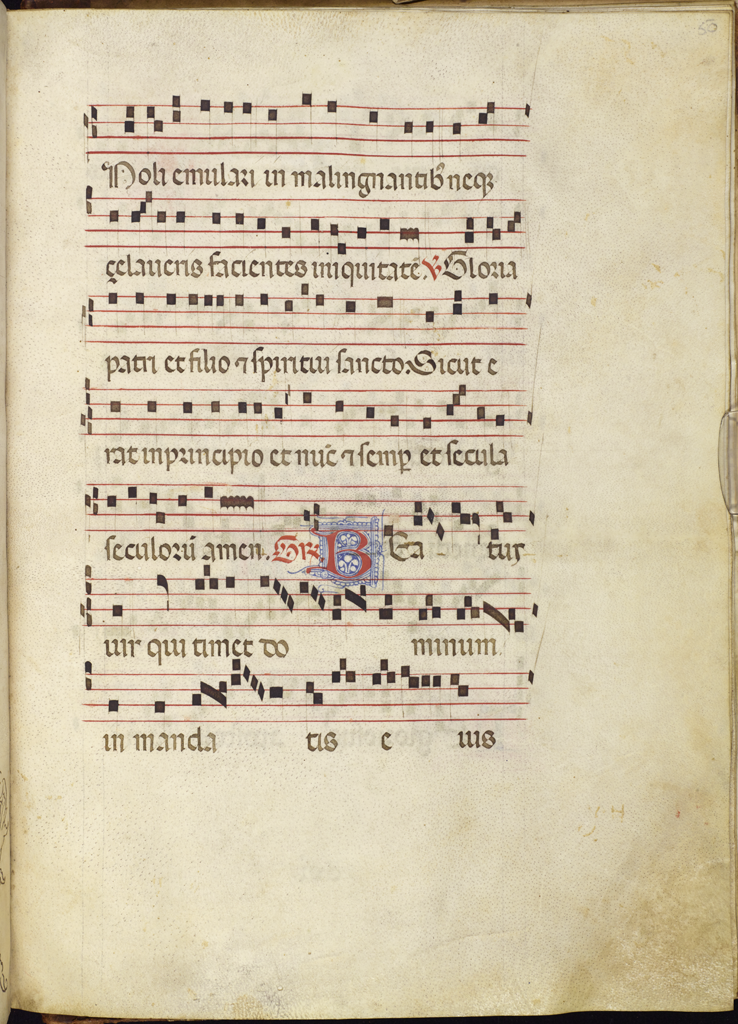 Noli emulari in malingnantib' neqꝫ
çelaueris facientes iniquitatē. ℣ Gloria
patri et filio ⁊ spiritui sancto. Sicut e
rat inprincipio et nūc ⁊ semꝑ et secula
seculoꝝ amen. Gr̄. BEa tus
uir qui timet do minum.
in manda tis e ius